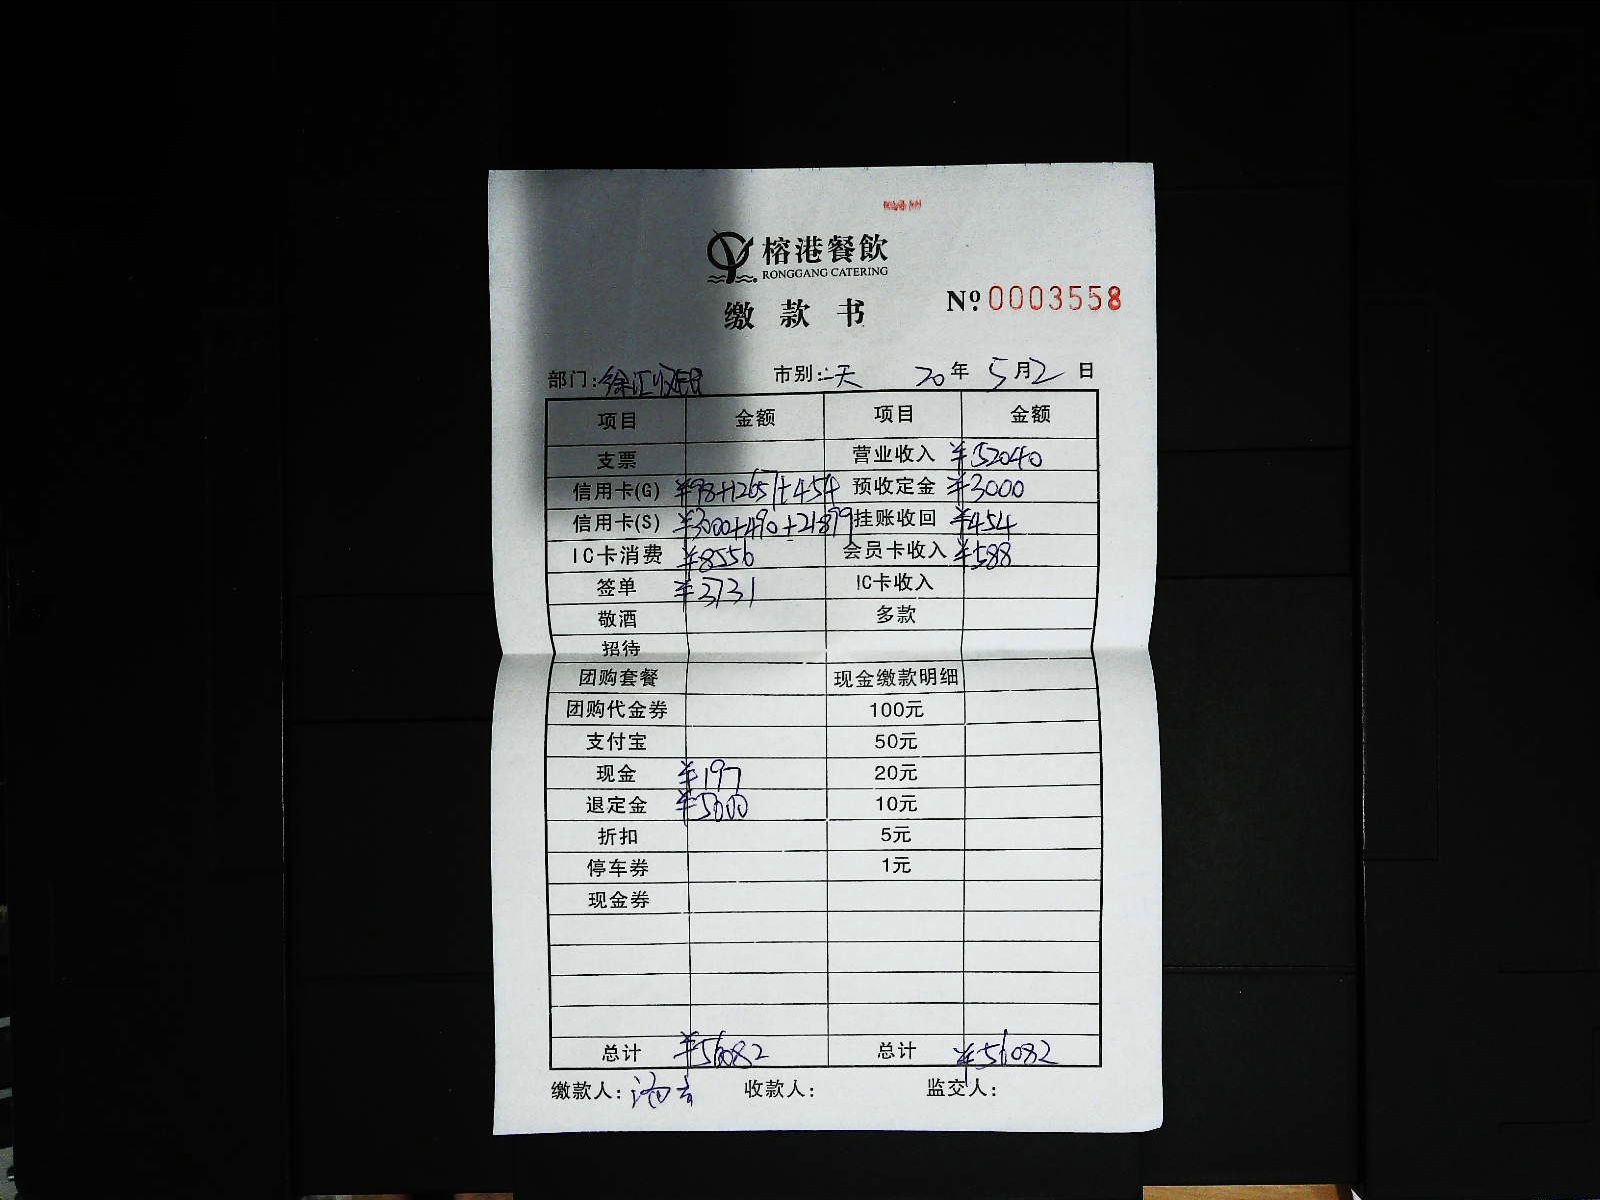 榕港餐飲
RONGGANG CATERING
缴款书 Nº 0003558
部门:徐汇收银 市别: 天 20年5月2日
项目 金额 项目 金额
支票 营业收入 ¥52040
信用卡(G) ¥98+12657+454 预收定金 ¥3000
信用卡(S) ¥3000+490+21899 挂账收回 ¥454
IC卡消费 ¥8556 会员卡收入 ¥588
签单 ¥3731 IC卡收入
敬酒 多款
招待
团购套餐 现金缴款明细
团购代金券 100元
支付宝 50元
现金 ¥197 20元
退定金 ¥5000 10元
折扣 5元
停车券 1元
现金券
总计 ¥56082 总计 ¥56082
缴款人: 收款人: 监交人: